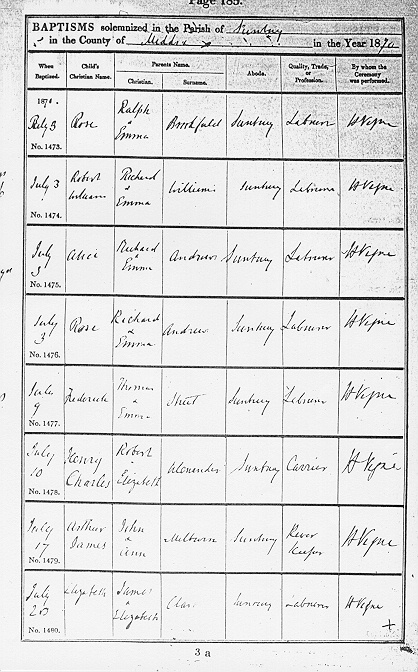 Page 185.
BAPTISMS solemnized in the Parish of Sunbury
in the County of Middx in the Year 1870
When Baptized. Child's Christian Name. Parents Name. Abode. Quality, Trade, or Profession. By whom the Ceremony was performed.
Christian. Surname.
1870.
July 3 Rose Ralph & Emma Sunbury Labourer H Vigne
No. 1473.
July 3 Robert William Richard & Emma Williams Sunbury Labourer H Vigne
No. 1474.
July 3 Alice Richard & Emma Andrews Sunbury Labourer H Vigne
No. 1475.
July 3 Rose Richard & Emma Andrews Sunbury Labourer H Vigne
No. 1476.
July 9 Frederick Thomas & Emma Street Sunbury Labourer H Vigne
No. 1477.
July 10 Henry Charles Robert & Elizabeth Sunbury Carrier H Vigne
No. 1478.
July 17 Arthur James John & Ann Milburn Sunbury River Keeper H Vigne
No. 1479.
July 23 Elizabeth James & Elizabeth Sunbury Labourer H Vigne
No. 1480.
3 a